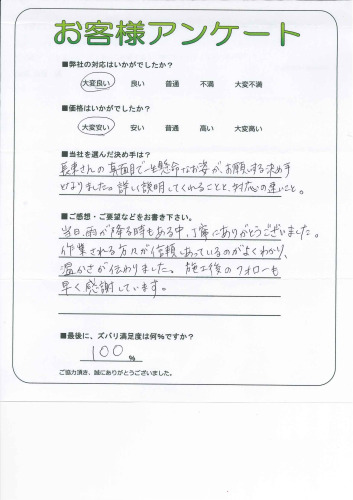 お客様アンケート
■弊社の対応はいかがでしたか?
大変良い 良い 普通 不満 大変不満
■価格はいかがでしたか?
大変安い 安い 普通 高い 大変高い
■当社を選んだ決め手は?
さんの真面目で一生懸命なお姿が、お願いする決め手
となりました。詳しく説明してくれることと、対応の速いこと。
■ご感想・ご要望などをお書き下さい。
当日、雨が降る時もある中、丁寧にありがとうございました。
作業される方々が信頼しあっているのがよくわかり、
温かさが伝わりました。施工後のフォローも
早く感謝しています。
■最後に、ズバリ満足度は何%ですか?
100%
ご協力頂き、誠にありがとうございました。